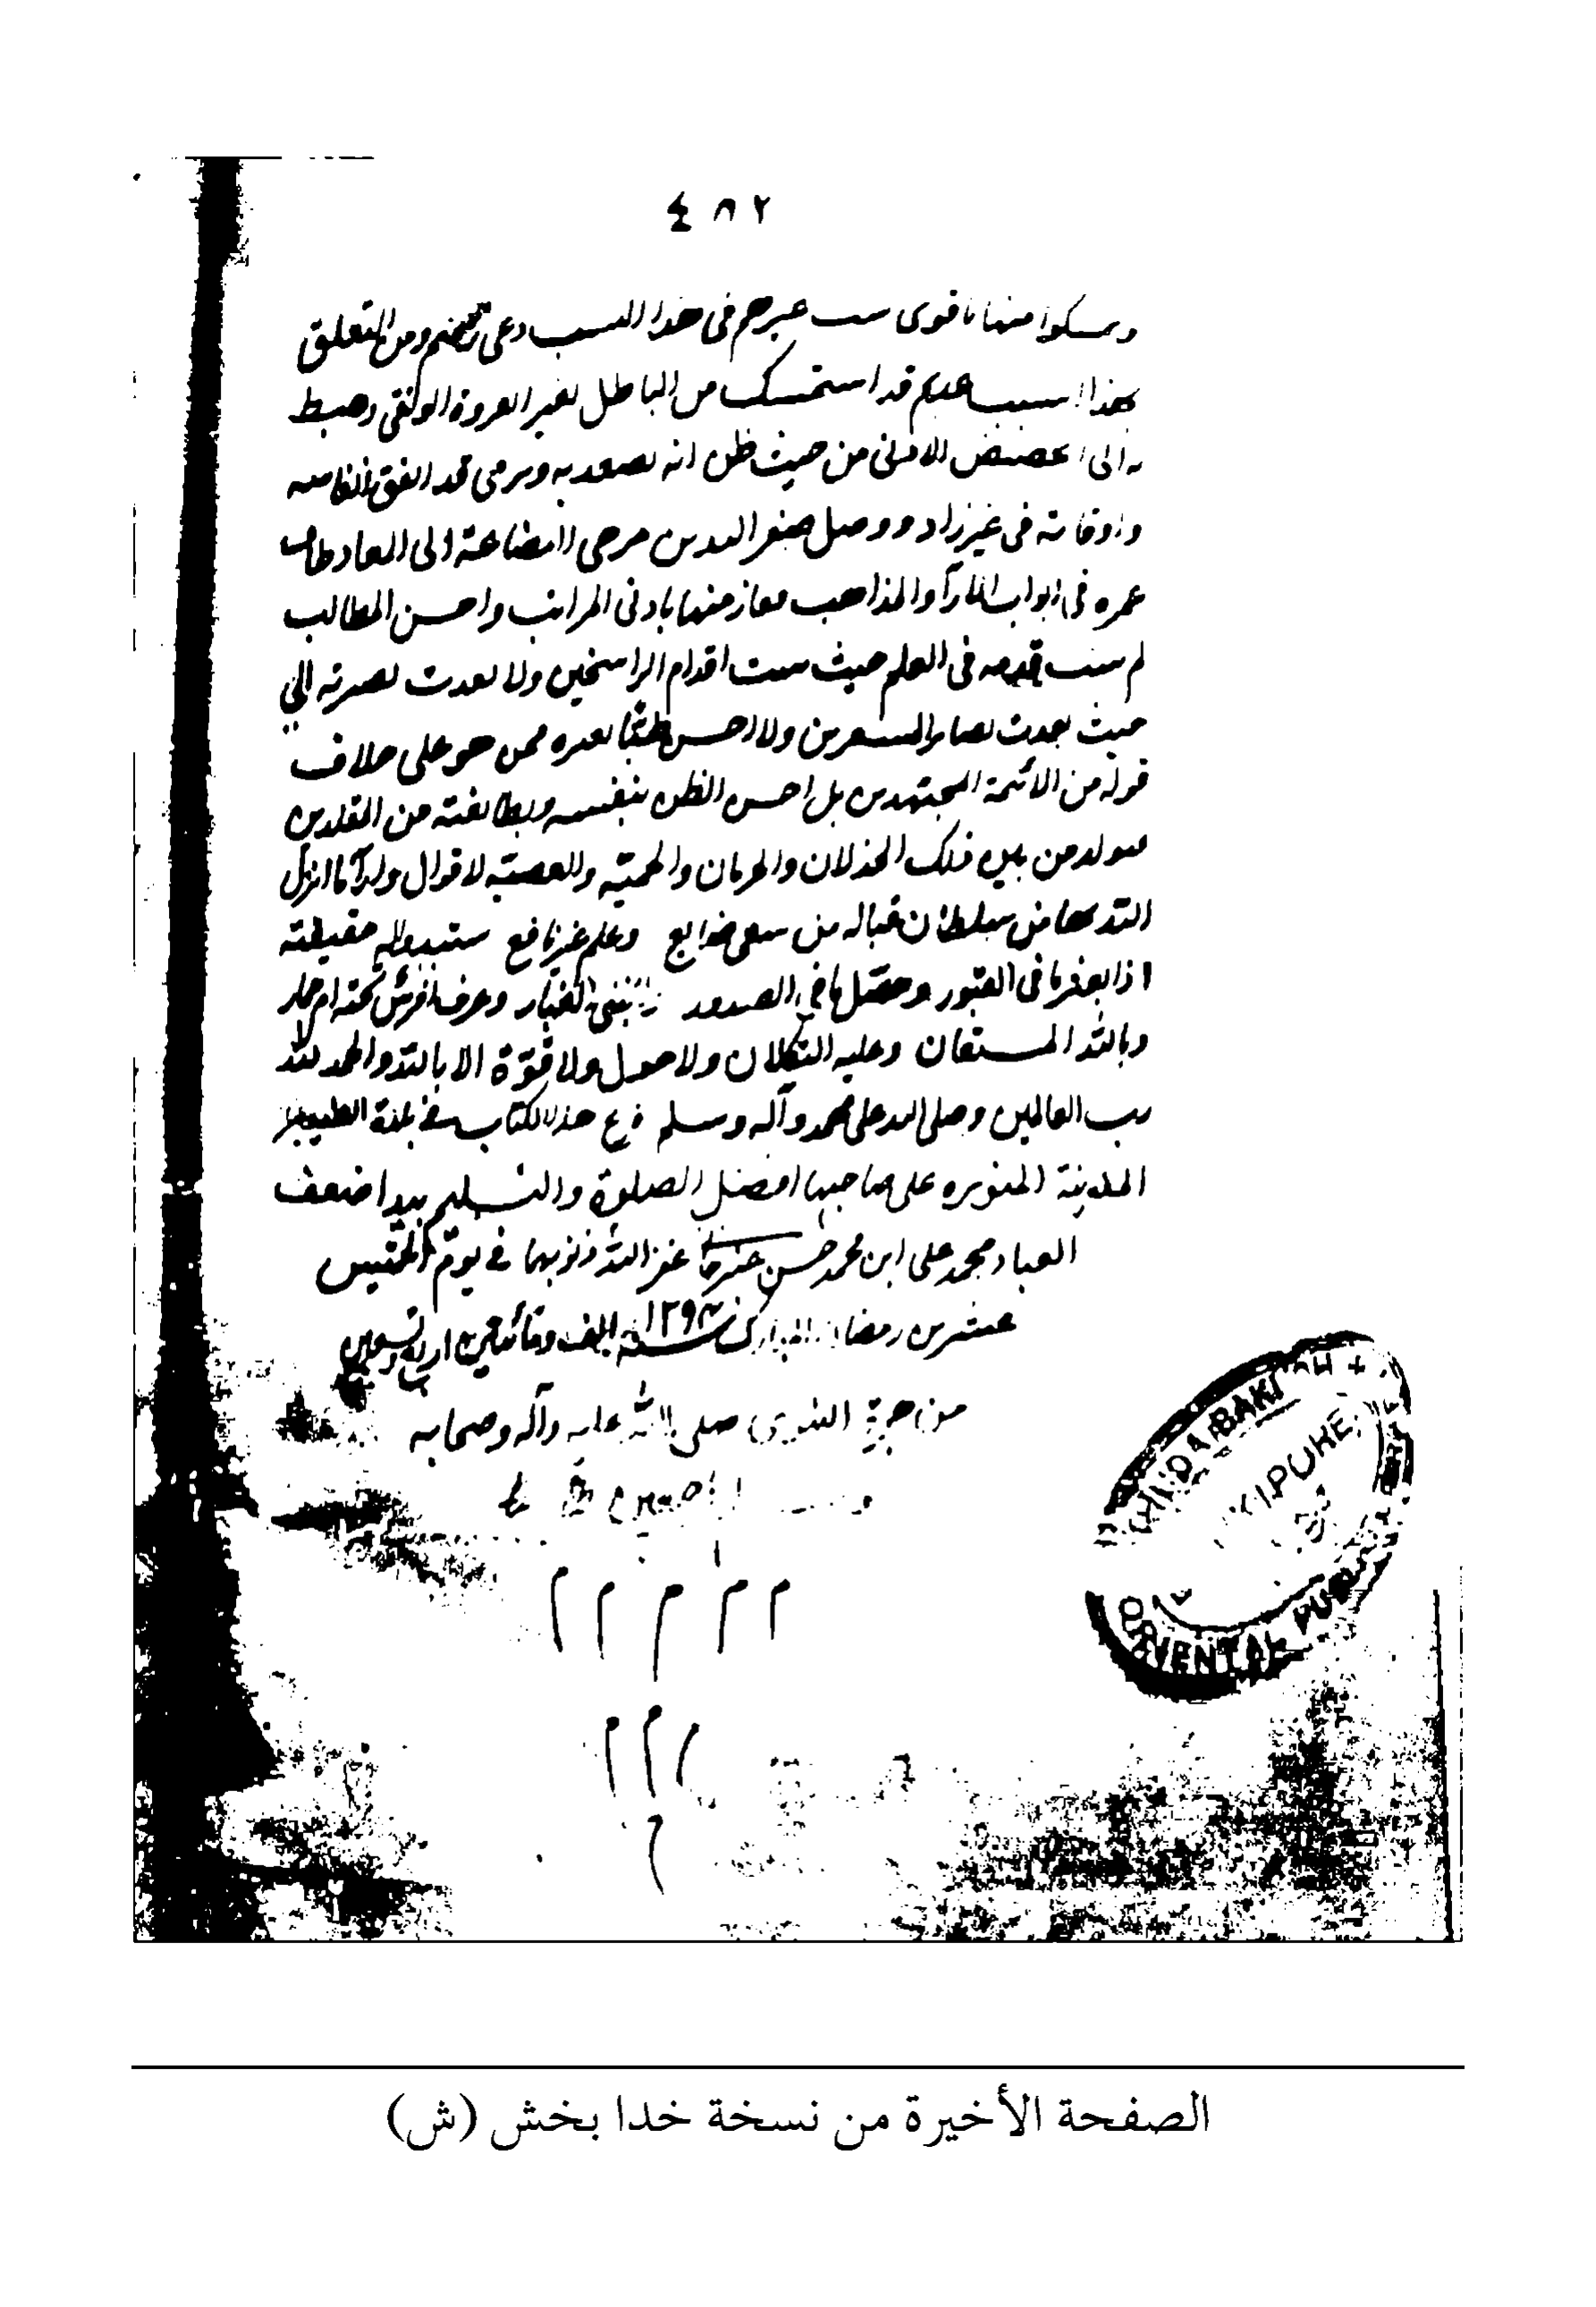 ٤٨٢
منها باقوى سبب غيرهم في هذا السبب ومن التعلق
بهذا السبب قد استمسك من الباطل بغير العروة الوثقى وهبط
من حيث ظن انه يصعد به قد انفق انفاسه
واوقاته في غير زاد ووصل صفر اليدين مزجى البضاعة الى المعاد
عمره في ابواب الآراء والمذاهب ففاز منها بادنى المراتب واخس المطالب
لم تثبت قدمه في العلم حيث ثبتت اقدام الراسخين ولا نفذت بصيرته الى
حيث نفذت بصائر المستبصرين ولا احسن ظنا بغيره ممن هو على خلاف
قوله من الأئمة المجتهدين بل احسن الظن بنفسه وبطائفته من المقلدين
فتولد من بين ذلك الخذلان والحرمان والحمية والعصبية لاقوال وآراء ما انزل
الله بها من سلطان فياله من سعي ضايع وعلم غير نافع ستبدو له حقيقته
اذا بعثر ما في القبور وحصل ما في الصدور الغبار وعرف افرس تحته ام حمار
وبالله المستعان وعليه التكلان ولا حول ولا قوة الا بالله والحمد لله
رب العالمين وصلى الله على محمد وآله وسلم فرغ هذا الكتاب في بلدة الطيبة
المدينة المنوره على صاحبها افضل الصلوة والتسليم بيد اضعف
العباد محمد على ابن محمد حسن غفر الله ذنوبهما في يوم الخميس
عشرين رمضان المبارك سنة ١٢٩٤ الف ومائتين اربع وتسعين
من هجرة النبوى صلى الله عليه وآله وصحابه
KHUDA BAKHSH
ORIENTAL PUBLIC
الصفحة الأخيرة من نسخة خدا بخش (ش)